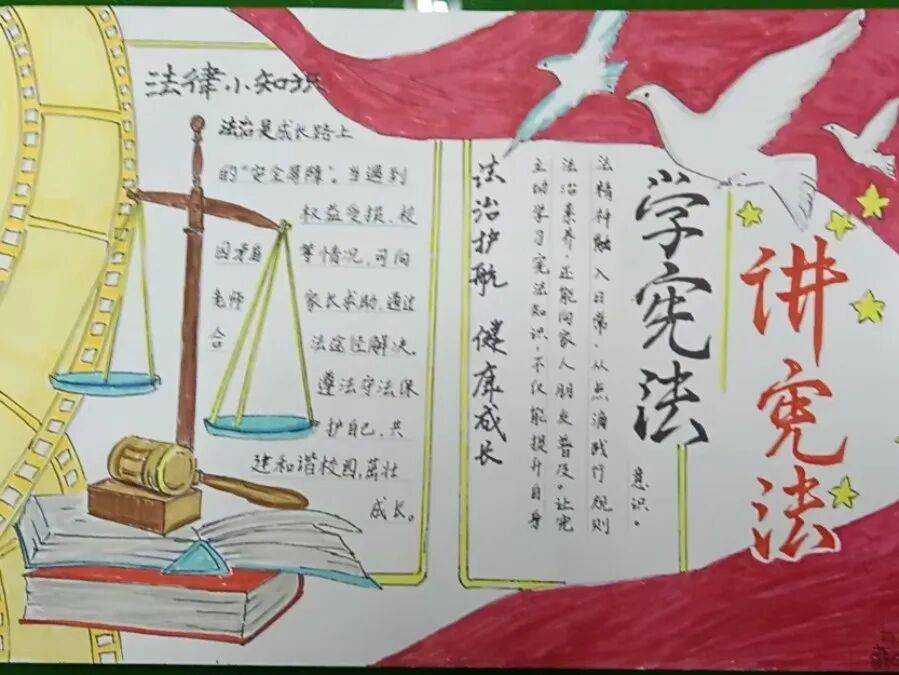 法律小知识
法治是成长路上
的“安全屏障”。当遇到
权益受损、校
园矛盾等情况,可向
老师家长求助,通过
合法途径解决。
遵法守法保
护自己,共
建和谐校园,茁壮
成长。
法治护航 健康成长
主动学习宪法知识,不仅能提升自身
法治素养,还能向家人朋友普及。让宪
法精神融入日常,从点滴践行规则
意识。
学宪法
讲宪法